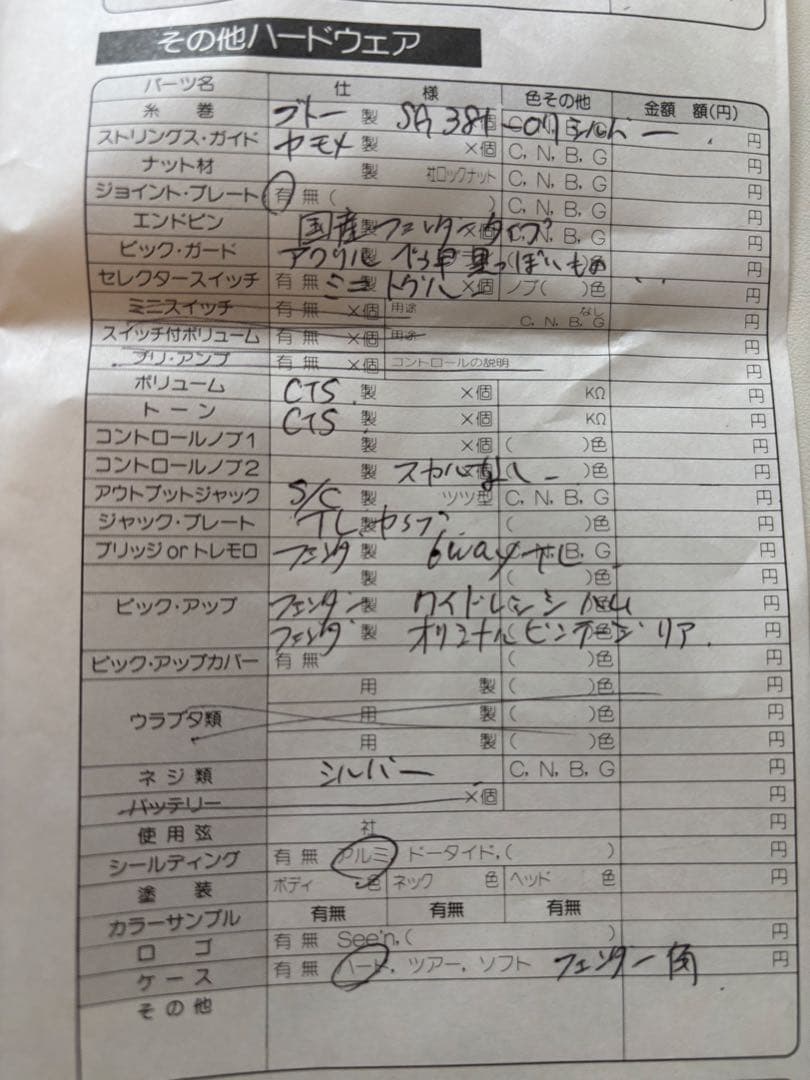 その他ハードウェア
パーツ名 仕 様 色その他 金額 額(円)
糸巻 ゴトー 製 個 シルバー 円
ストリングス・ガイド カモメ ×個 C, N, B, G 円
ナット材 製 社ロックナット C, N, B, G 円
ジョイント・プレート 有 無 ( ) C, N, B, G 円
エンドピン 国産 製 フェンタータイプ? ×個 C, N, B, G 円
ピック・ガード アクリル 製 べっ甲 黒っぽいもの 円
セレクタースイッチ 有 無 ミニトグル ×個 ノブ( )色 円
ミニスイッチ 有 無 ×個 用途 なし C, N, B, G 円
スイッチ付ボリューム 有 無 ×個 用途 円
プリ・アンプ 有 無 ×個 コントロールの説明 円
ボリューム CTS 製 ×個 KΩ 円
トーン CTS 製 ×個 KΩ 円
コントロールノブ1 製 ×個 ( )色 円
コントロールノブ2 製 ×個 ( )色 円
アウトプットジャック S/C 製 ツツ型 C, N, B, G 円
ジャック・プレート TL 製 ( )色 円
ブリッジorトレモロ フェンダ 製 6way B, G 円
製 ( )色 円
ピック・アップ フェンダー 製 ワイドレンジ 円
フェンダ 製 オリジナルビンテージ リア 色 円
ピック・アップカバー 有 無 ( )色 円
用 製 ( )色 円
ウラブタ類 用 製 ( )色 円
用 製 ( )色 円
ネジ類 シルバー C, N, B, G 円
バッテリー ×個 円
使用弦 社 円
シールディング 有 無 アルミ ドータイド, ( ) 円
塗装 ボディ 色 ネック 色 ヘッド 色 円
カラーサンプル 有無 有無 有無
ロゴ 有 無 See'n, ( ) 円
ケース 有 無 ハード, ツアー, ソフト フェンダー角 円
その他